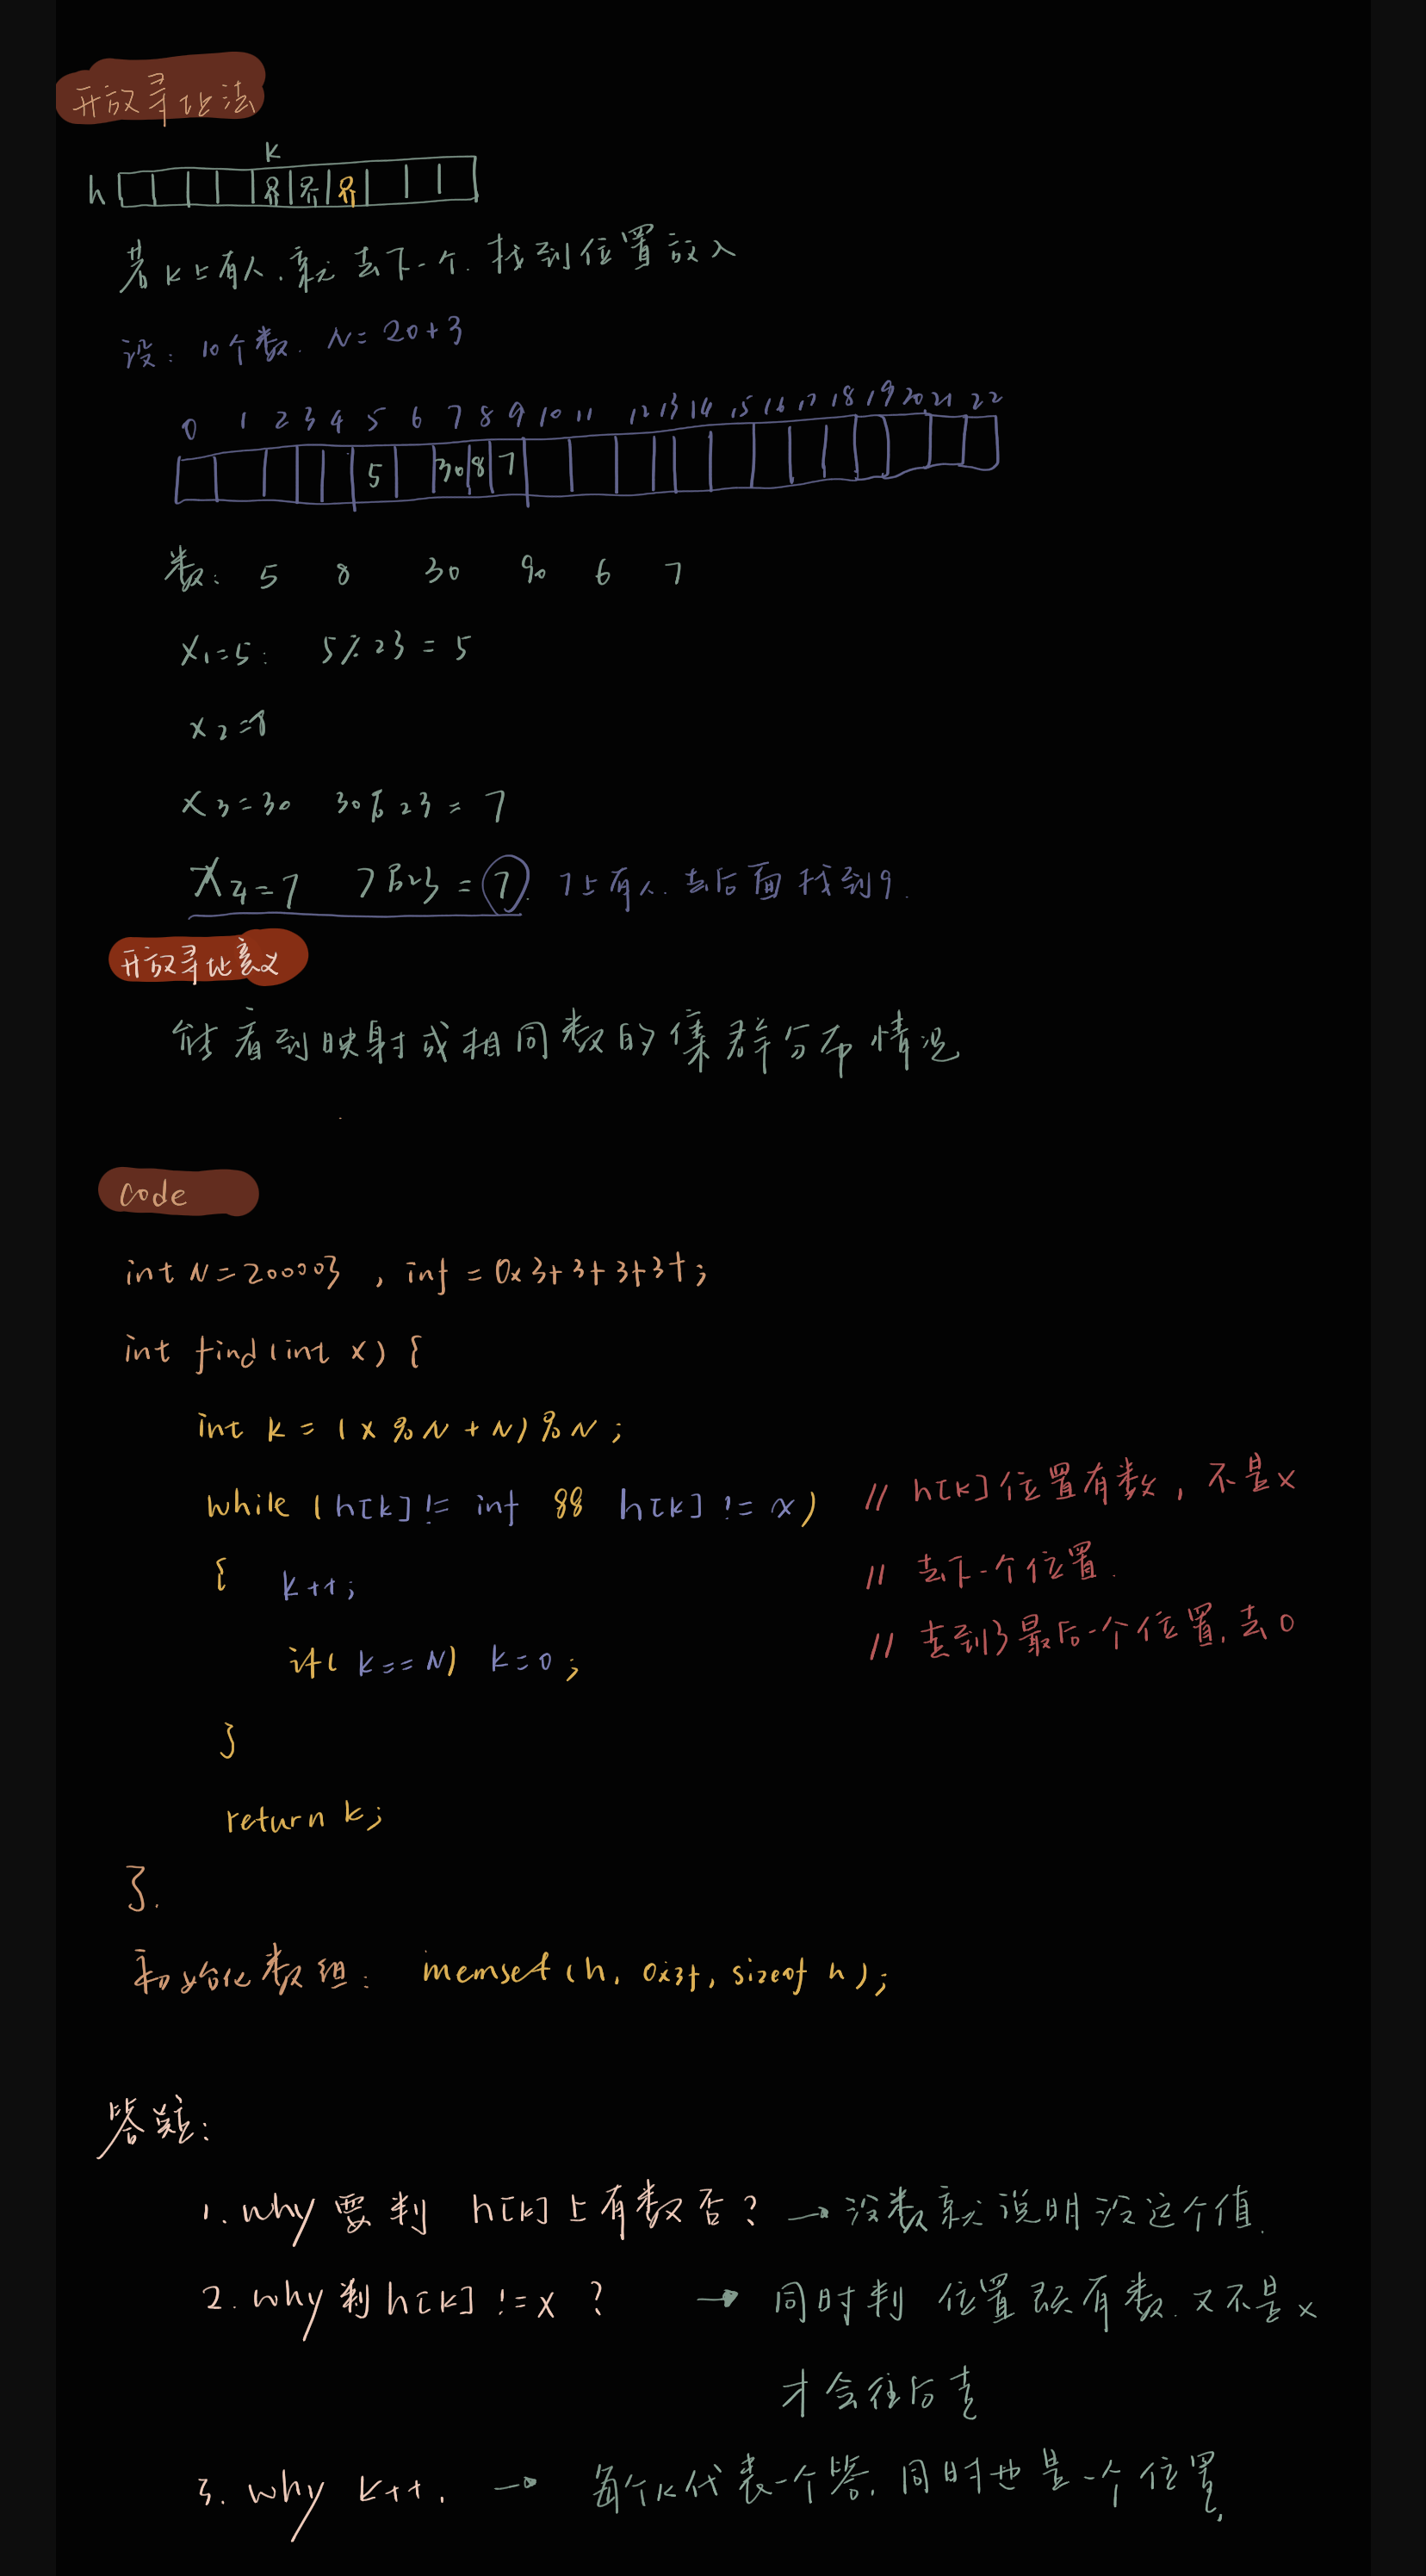 开放寻址法
k
h
若k上有人.就去下一个.找到位置放入
设: 10个数. N=20+3
0 1 2 3 4 5 6 7 8 9 10 11 12 13 14 15 16 17 18 19 20 21 22
5 30 8 7
数: 5 8 30 90 6 7
x1=5: 5%23=5
x2=8
x3=30 30%23=7
x4=7 7%23=7. 7上有人.去后面找到9.
开放寻址意义
能看到映射或相同数的集群分布情况
code
int N=200003, inf=0x3f3f3f3f;
int find(int x) {
int k=(x%N+N)%N;
while (h[k]!=inf && h[k]!=x) // h[k]位置有数,不是x
{ k++; // 去下一个位置.
if(k==N) k=0; // 走到了最后一个位置,去0
}
return k;
}.
初始化数组: memset(h, 0x3f, sizeof h);
答疑:
1. why 要判 h[k]上有数否? → 没数就说明没这个值.
2. why 判h[k]!=x ? → 同时判 位置既有数.又不是x
才会往后走
3. why k++. → 每个k代表一个答,同时也是一个位置.